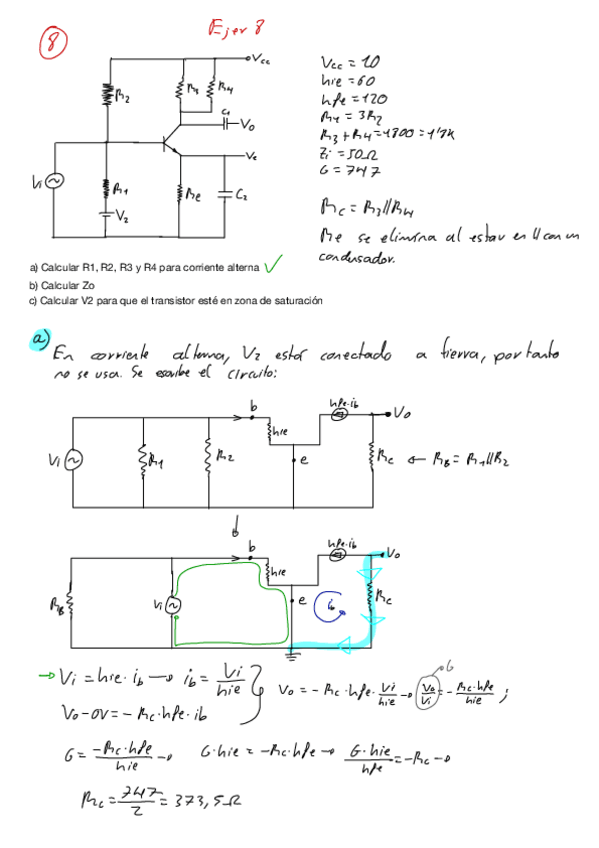 8
Ejer 8
Vcc
R2
R3
R4
C1
Vo
Ve
Vi
R1
V2
Re
C2
Vcc = 10
hie = 60
hfe = 120
R1 = 3R2
R3 + R4 = 1800 = 1'8K
Zi = 50Ω
G = 747
Rc = R3//R4
Re se elimina al estar en // con un
condusador.
a) Calcular R1, R2, R3 y R4 para corriente alterna ✓
b) Calcular Zo
c) Calcular V2 para que el transistor esté en zona de saturación
a)
En corriente alterna, V2 estar conectado a tierra, por tanto
no se usa. Se escribe el circuito:
b
hfe·ib
Vo
hie
Vi
R1
R2
e
Rc ← RB = R1//R2
b
hfe·ib
Vo
hie
RB
Vi
e
ib
Rc
→ Vi = hie · ib → ib = Vi/hie
Vo - 0V = - Rc · hfe · ib
Vo = - Rc · hfe · Vi/hie → Vo/Vi = - Rc·hfe/hie ;
G
G = -Rc·hfe/hie → G·hie = -Rc·hfe → G·hie/hfe = -Rc →
Rc = 747/2 = 373,5Ω